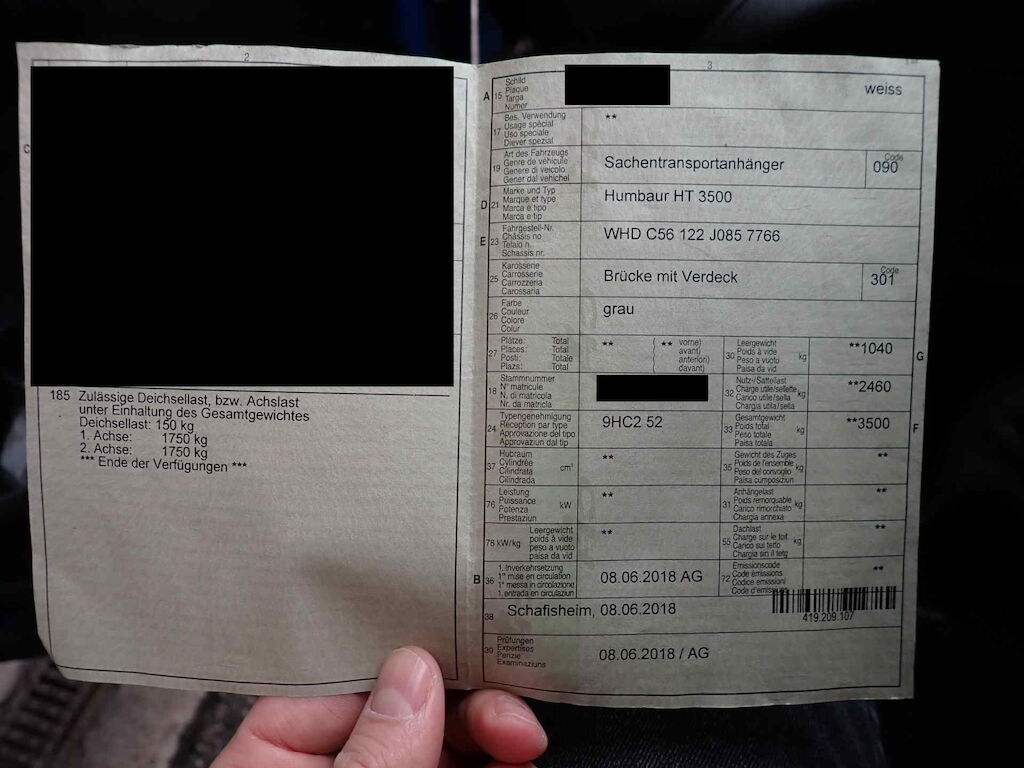 2
C
185 Zulässige Deichsellast, bzw. Achslast
unter Einhaltung des Gesamtgewichtes
Deichsellast: 150 kg
1. Achse: 1750 kg
2. Achse: 1750 kg
*** Ende der Verfügungen ***
3
A 15 Schild
Plaque
Targa
Numer
weiss
17 Bes. Verwendung
Usage spécial
Uso speciale
Diever spezial
**
19 Art des Fahrzeugs
Genre de véhicule
Genere di veicolo
Gener dal vehichel
Sachentransportanhänger
Code
090
D 21 Marke und Typ
Marque et type
Marca e tipo
Marca e tip
Humbaur HT 3500
E 23 Fahrgestell-Nr.
Châssis no
Telaio n.
Schassis nr.
WHD C56 122 J085 7766
25 Karosserie
Carrosserie
Carrozzeria
Carossaria
Brücke mit Verdeck
Code
301
26 Farbe
Couleur
Colore
Colur
grau
27 Plätze: Total
Places: Total
Posti: Totale
Plazs: Total
** ( ** vorne)
avant)
anteriori)
davant)
30 Leergewicht
Poids à vide
Peso a vuoto
Paisa da vid
kg
**1040
G
18 Stammnummer
N° matricule
N. di matricola
Nr. da matricla
32 Nutz-/Sattellast
Charge utile/sellette
Carico utile/sella
Chargia utila/sella
kg
**2460
24 Typengenehmigung
Réception par type
Approvazione del tipo
Approvaziun dal tip
9HC2 52
33 Gesamtgewicht
Poids total
Peso totale
Paisa totala
kg
**3500
F
37 Hubraum
Cylindrée
Cilindrata
Cilindrada
cm³
**
35 Gewicht des Zuges
Poids de l'ensemble
Peso del convoglio
Paisa cumposiziun
kg
**
76 Leistung
Puissance
Potenza
Prestaziun
kW
**
31 Anhängelast
Poids remorquable
Carico rimorchiato
Chargia annexa
kg
**
78 kW/kg
Leergewicht
poids à vide
peso a vuoto
paisa da vid
**
55 Dachlast
Charge sur le toit
Carico sul tetto
Chargia sin il tetg
kg
**
B 36 1. Inverkehrsetzung
1re mise en circulation
1a messa in circolazione
1. entrada en circulaziun
08.06.2018 AG
72 Emissionscode
Code émissions
Codice emissioni
Code d'emissiuns
**
38 Schafisheim, 08.06.2018
419.209.107
39 Prüfungen
Expertises
Perizie
Examinaziuns
08.06.2018 / AG